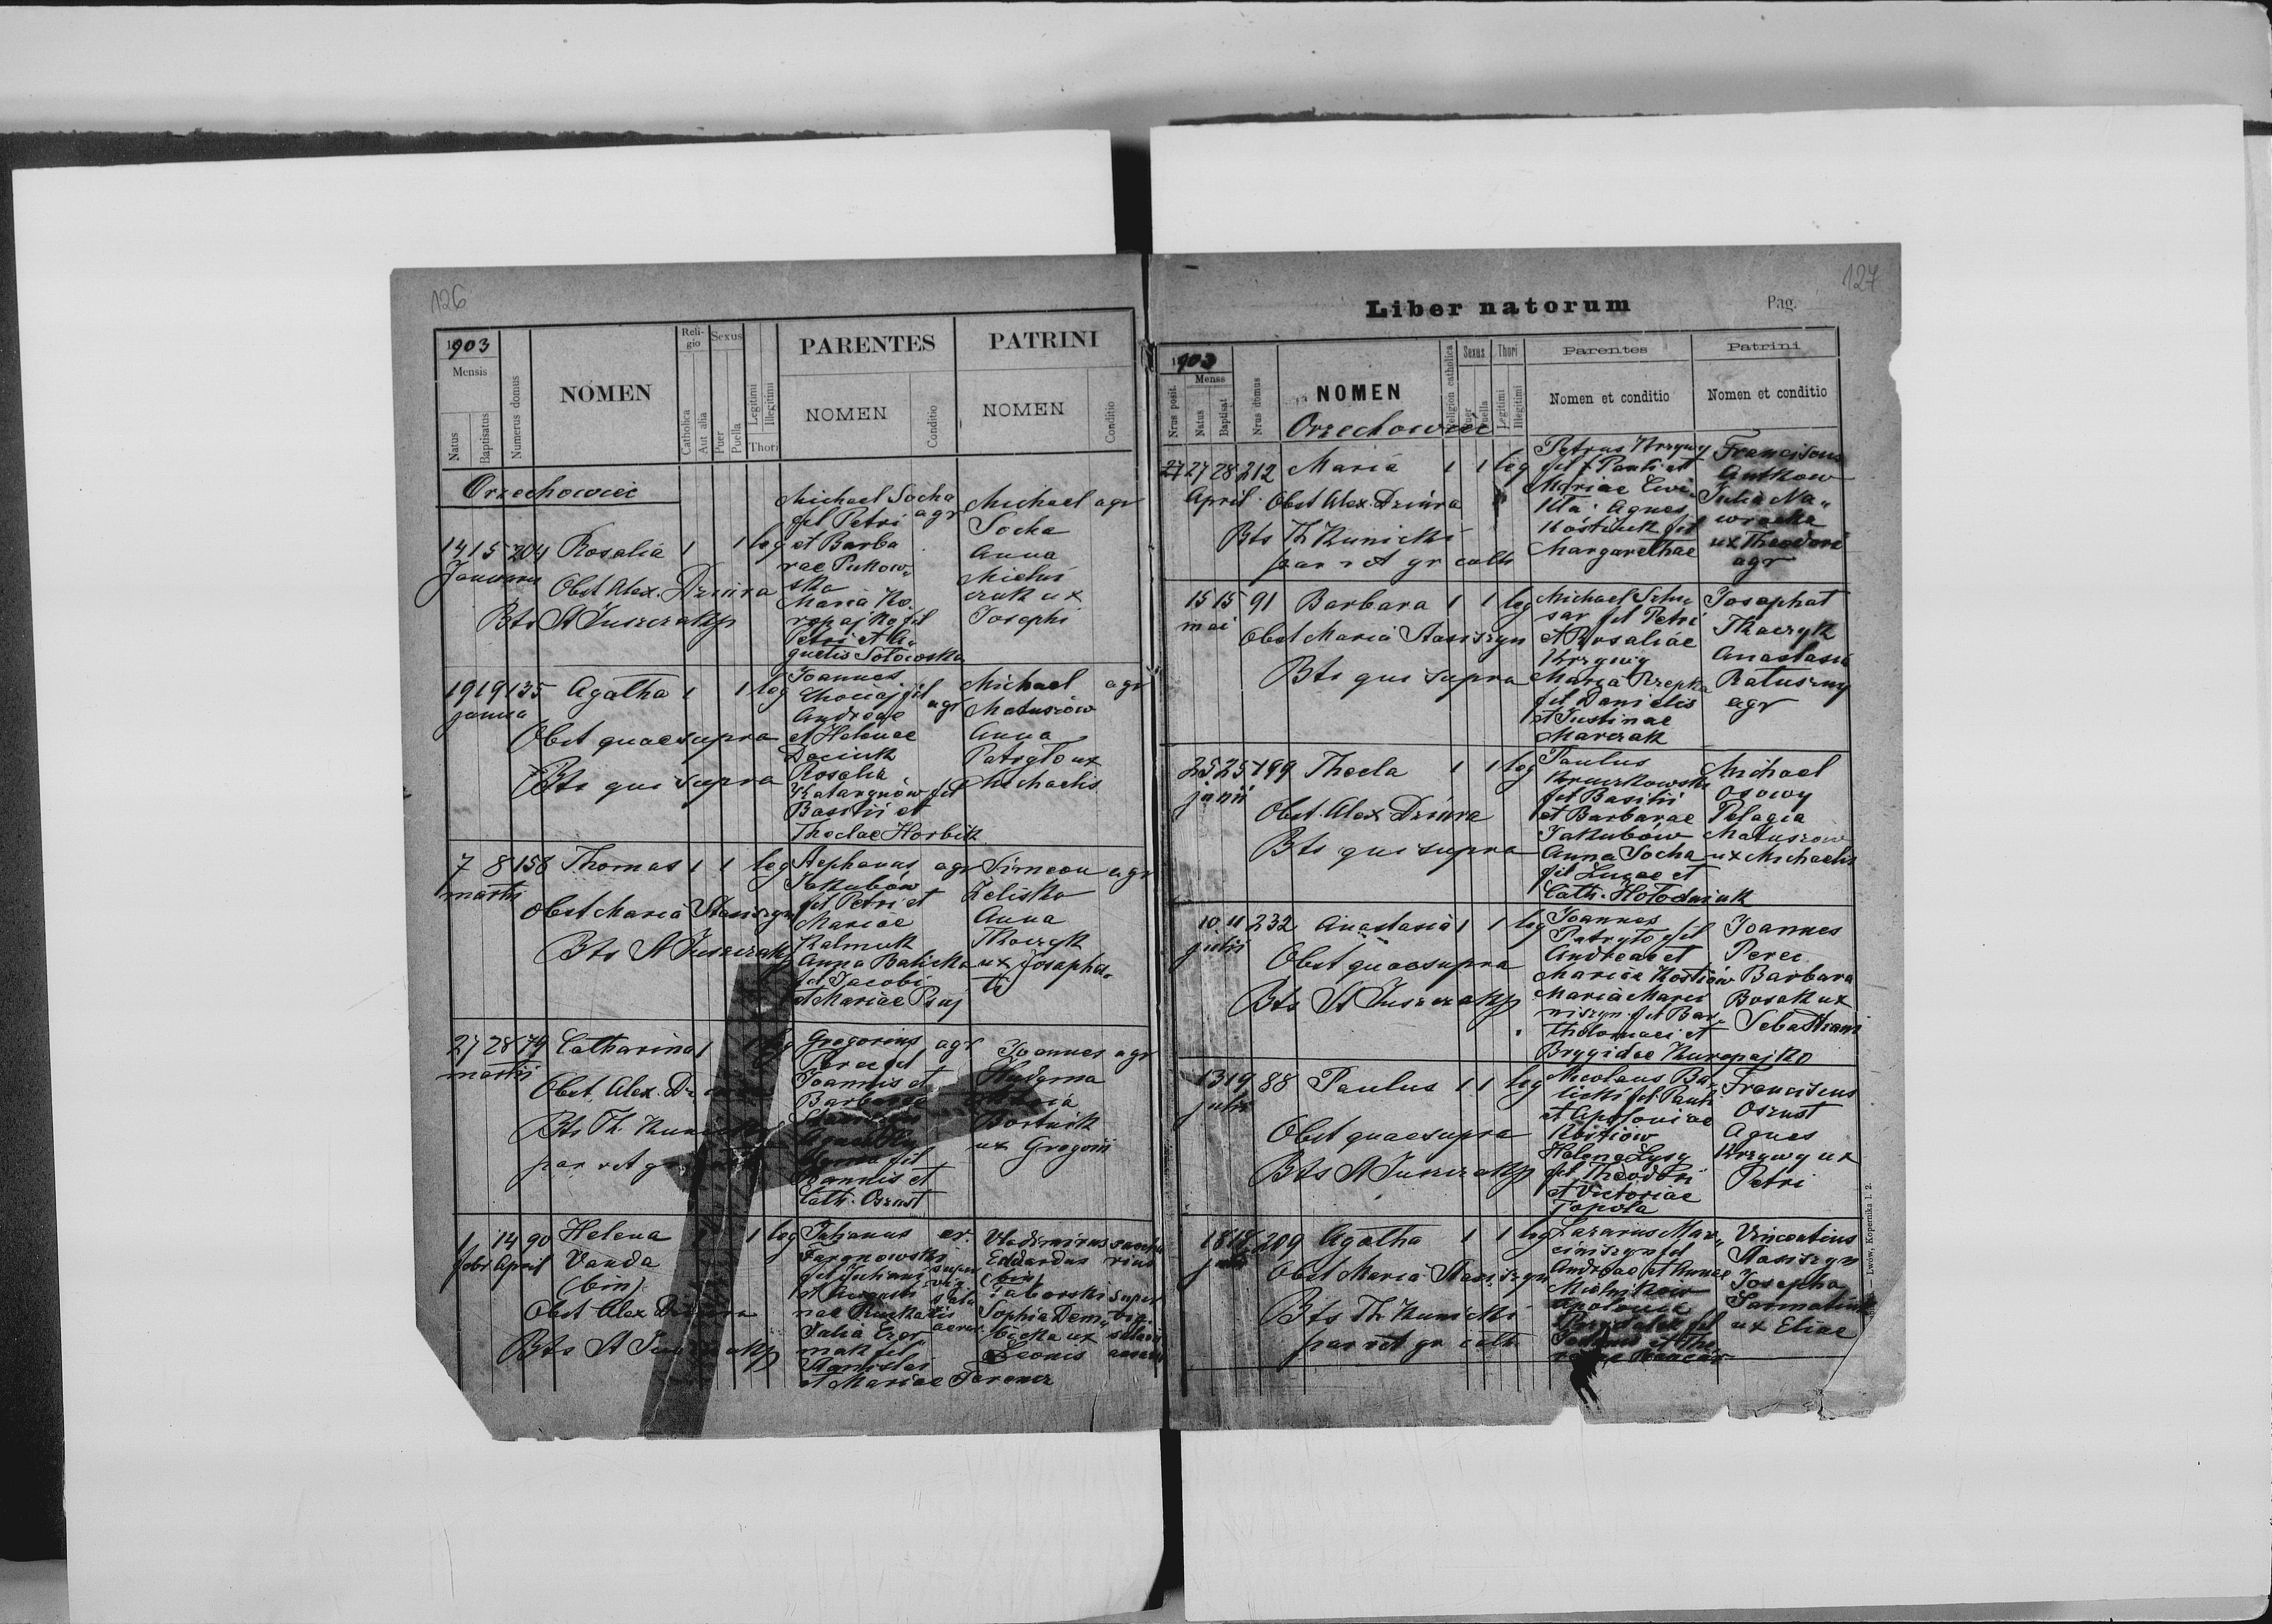 126
1903
Mensis
Natus
Baptisatus
Numerus domus
NOMEN
Religio
Catholica
Aut alia
Sexus
Puer
Puella
Legitimi
Illegitimi
Thori
PARENTES
NOMEN
Conditio
PATRINI
NOMEN
Conditio
Orzechowiec
14 15 204 Rosalia 1 1 leg
Januarii
Obst Alex. Dziura
Bts St Juszczak
Michael Socha
fil Petri agr
et Barba
rae Pukow„
ska
Maria Ko„
ropajko fil
Petri et A„
gnetis Sotowska
Michael agr
Socha
Anna
ux
Josephi
19 19 135 Agatha 1 1 leg
janua
Obst quae supra
Bts qui supra
Joannes
fil
agr
Andreae
et Helenae
Daciuk
Rosalia
fil
Basilii et
Theclae Horbik
Michael agr
Matuszów
Anna
Patryło ux
Michaelis
7 8 158 Thomas 1 1 leg
martii
Obst Maria Stasiszyn
Bts St Juszczak
Stephanus agr
Jakubów
fil Petri et
Mariae
Kalmuk
Anna Balicka
fil Jacobi
et Mariae
Simeon agr
Zelisko
Anna
Tkaczyk
ux Josapha„
ti
27 28 79 Catharina 1 1 leg
martii
Obst. Alex. Dz
Bts Th. Kunicki
par rit gr
Gregorius agr
Perec fil
Joannis et
Barbarae
fil
Joannis et
Cath. Oszust
Joannes agr
Hudyma
Maria
Bortnik
ux Gregorii
1 14 90 Helena 1 leg
febr April Vanda
(bin)
Obst Alex Dziura
Bts St Juszczak
Julianus
Taranowski
fil Juliani
et
nae
Julia
fil
Stanislai
et Mariae
Vladimirus
Edduardus
(bin)
Taborski
Sophia Dem„
bicka ux
Leonis
127
Liber natorum
Pag.
1903
Nrus posit.
Menss
Natus
Baptisat
Nrus domus
NOMEN
Religion catholica
Sexus
Puer
Puella
Thori
Legitimi
Illegitimi
Parentes
Nomen et conditio
Patrini
Nomen et conditio
Orzechowiec
27 27 28 212 Maria 1 1 leg
April Obst Alex. Dziura
Bts Th Kunicki
par rit gr cath
Petrus Krzywy
fil Pauli et
Mariae Cwi„
kła Agnes
Kostiuk fil
Margarethae
Franciscus
Antkow
Julia Na„
wrocka
ux Theodori
agr
15 15 91 Barbara 1 1 leg
mai
Obst Maria Stasiszyn
Bts qui supra
Michael Schu„
sar fil Petri
et Rosaliae
Krzywy
Maria Rzepka
fil Danielis
et Justinae
Marczak
Josaphat
Tkaczyk
Anastasia
Ratuszny
agr
25 25 199 Thecla 1 1 leg
junii
Obst. Alex Dziura
Bts qui supra
Paulus
Kruczkowski
fil Basilii
et Barbarae
Jakubów
Anna Socha
fil Lucae et
Cath. Hołodniuk
Michael
Osowy
Pelagia
Matuszow
ux Michaelis
10 11 232 Anastasia 1 1 leg
julii
Obst quae supra
Bts St Juszczak
Joannes
Patryło fil
Andreae et
Mariae Kostiów
Maria Marci„
niszyn fil Bar„
tholomaei et
Brygidae Kuropajko
Joannes
Perec
Barbara
Bosak ux
Sebastiani
13 19 88 Paulus 1 1 leg
julii
Obst quae supra
Bts St Juszczak
Nicolaus Ba„
licki fil Pauli
et Apoloniae
Kostiów
Helena Łysy
fil Theodori
et Victoriae
Topola
Franciscus
Oszust
Agnes
Krzywy ux
Petri
18 18 209 Agatha 1 1 leg
Obst Maria Stasiszyn
Bts Th Kunicki
par rit gr cath
Lazarus Mar„
ciniszyn fil
Andreae et Annae
Mielnikow
Apolonia
fil
et The
Vincentius
Stasiszyn
Josepha
ux Eliae
Lwów, Kopernika l. 2.